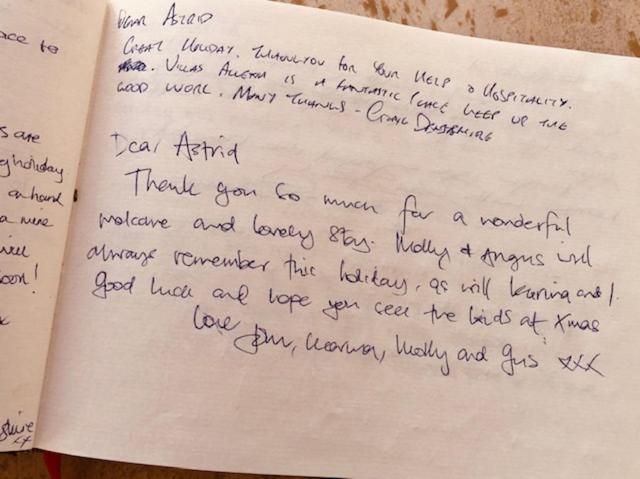 ace to
s are
g holiday
on hand
a more
will
soon!
x
shire
Dear Astrid
Great Holiday. Thankyou for your Help & Hospitality.
Villas Alleyra is a fantastic place keep up the
good work. Many Thanks - Craig Denashire
Dear Astrid
Thank you so much for a wonderful
welcome and lovely stay. Molly & Angus will
always remember this holiday, as will and I.
Good luck and hope you see the kids at Xmas
Love John, Molly and Gus xxx